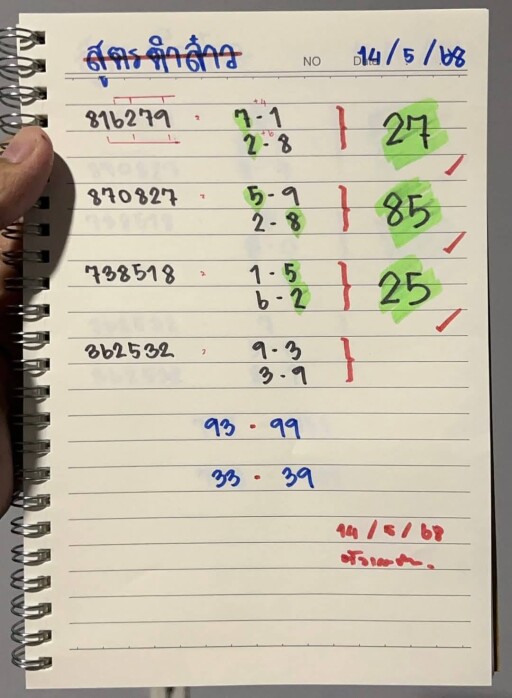 สูตรคำลาว NO 14/5/68
+4
816279 · 7-1
+6
2-8 } 27 ✓
870827 · 5-9
2-8 } 85 ✓
738518 · 1-5
6-2 } 25 ✓
362532 · 9-3
3-9 }
93 · 99
33 · 39
14/5/68